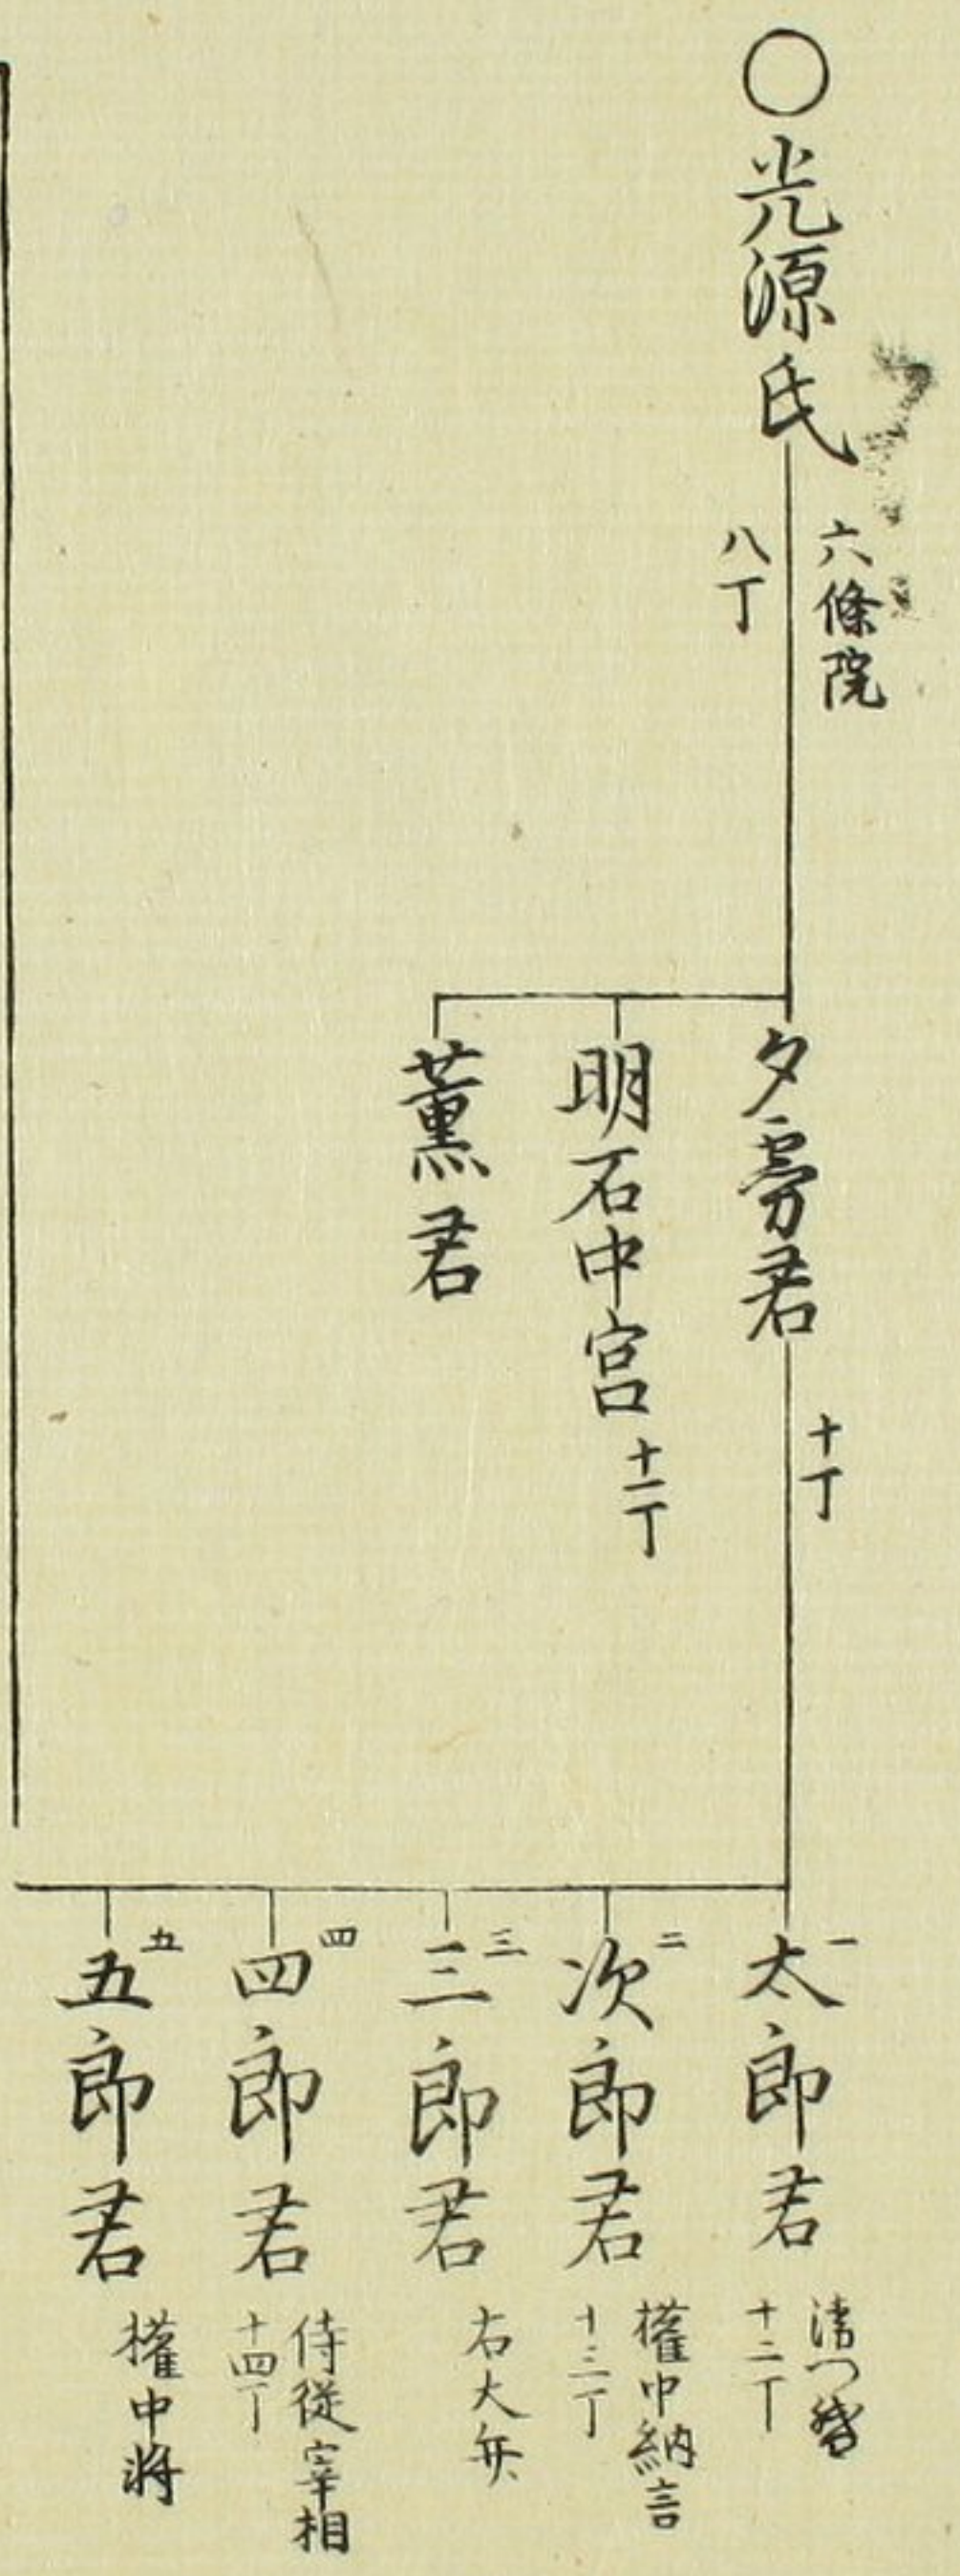 ○光源氏
六條院
八丁
夕霧君
十丁
明石中宮
十一丁
薫君
一
太郎君
十二丁
二
次郎君
權中納言
十三丁
三
三郎君
右大弁
四
四郎君
侍従宰相
十四丁
五
五郎君
權中将